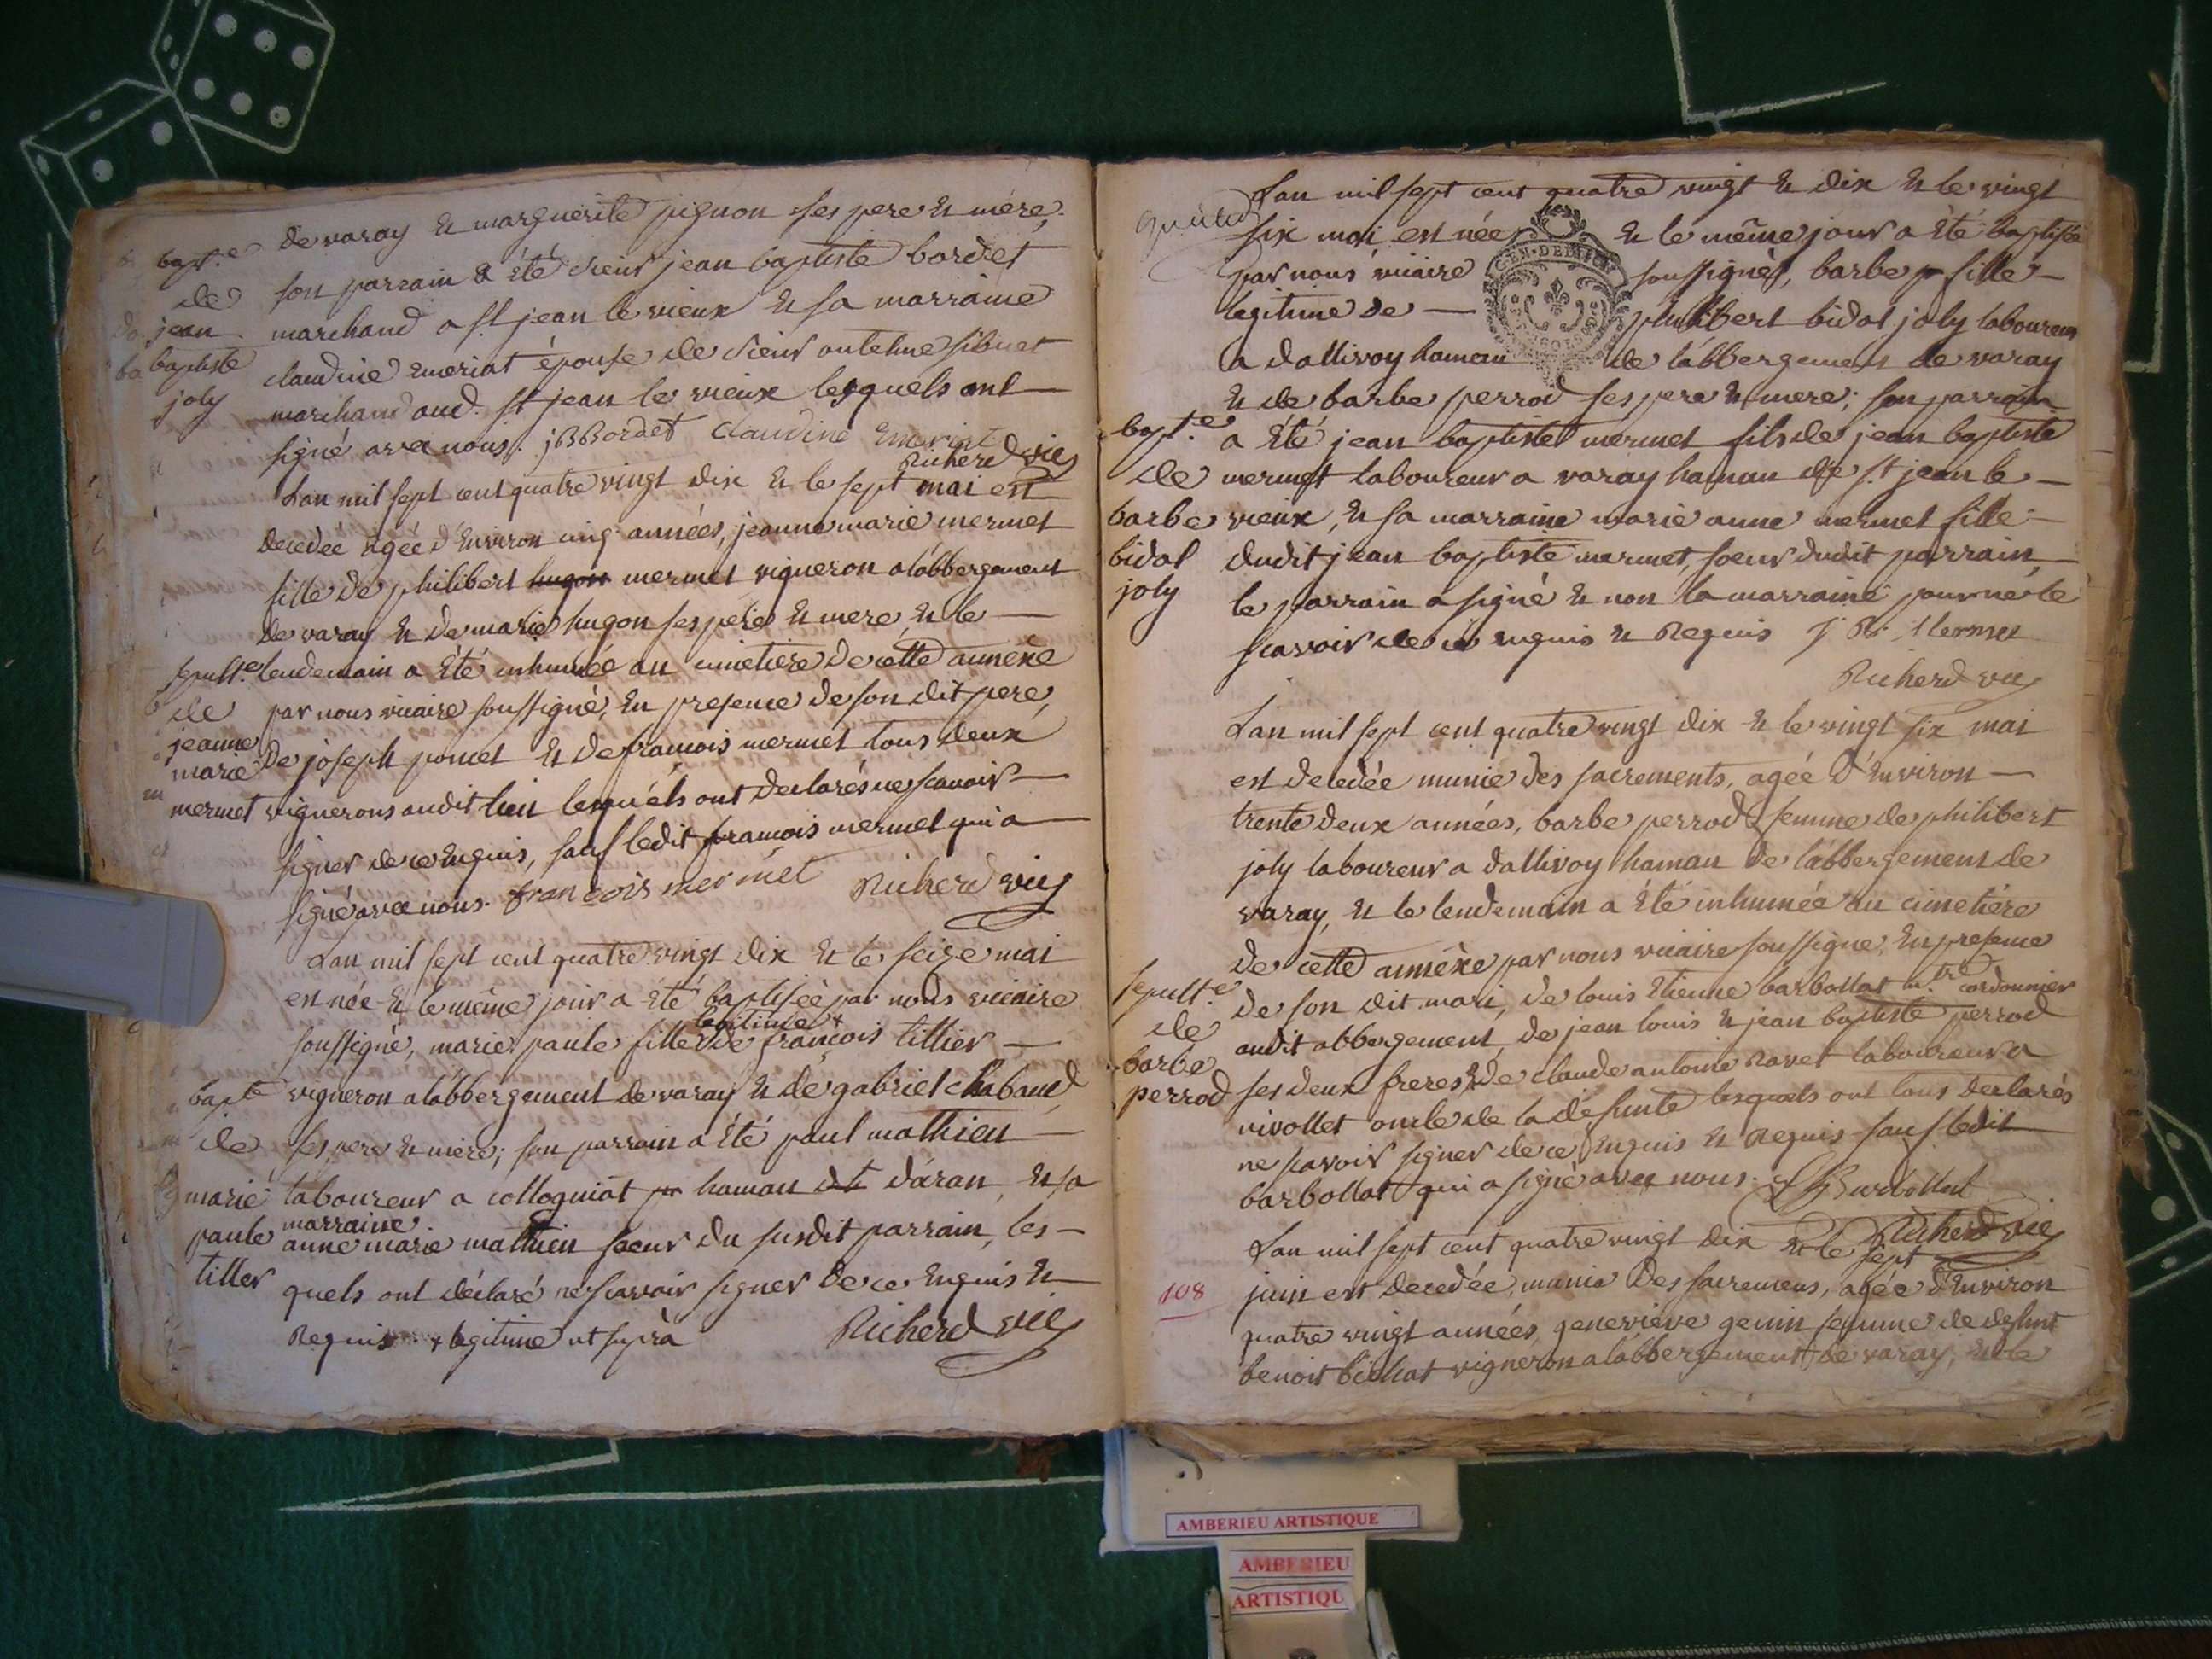 de varay et marguerite pignon ses pere et mere;
bapt.e
son parrain a été sieur jean baptiste bordet
de
marchand a st jean le vieux et sa marraine
jean
claudine emeriat épouse de sieur antelme sibuet
baptiste
marchand aud. st jean le vieux lesquels ont
joly
signé avec nous. jBBordet Claudine Emeriat
Richerd vic
Lan mil sept cent quatre vingt dix et le sept mai est
decedée agée d'environ cinq années, jeanne marie mermet
fille de philibert hugon mermet vigneron a l'abbergement
de varay et de marie hugon ses pere et mere et le
sepult.e lendemain a été inhumée au cimetiere de cette annexe
de par nous vicaire soussigné, en presence de son dit pere,
jeanne
marie de joseph poncet et de françois mermet tous deux
mermet vignerons audit lieu lesquels ont declarés ne scavoir
signer de ce enquis, sauf ledit françois mermet qui a
signé avec nous. françois mermet Richerd vic
Lan mil sept cent quatre vingt dix et le seize mai
est née et le même jour a été baptisée par nous vicaire
legitime +
soussigné, marie paule fille de françois tillier
bapt.e vigneron a l'abbergement de varay et de gabriel chabaud
de ses pere et mere; son parrain a été paul mathieu
marie laboureur a colloguiat hamau d'áran, et sa
marraine
paule anne marie mathieu soeur du susdit parrain, les-
tiller quels ont déclaré ne scavoir signer de ce enquis et
Requis + legitime ut suprà Richerd vic
Lan mil sept cent quatre vingt et dix et le vingt
six mai est née et le même jour a été baptisée
par nous vicaire soussigné, barbe fille
GEN. DE DIJON
legitime de philibert bidal joly laboureur
a dallivoy hameau de l'abbergement de varay
et de barbe perrod ses pere et mere; son parrain
bapt.e a été jean baptiste mermet fils de jean baptiste
de mermet laboureur a varay hamau de st jean le
barbe vieux, et sa marraine marie anne mermet fille
bidal dudit jean baptiste mermet, soeur dudit parrain,
joly le parrain a signé et non la marraine pour ne le
scavoir de ce enquis et Requis J B Mermet
Richerd vic
Lan mil sept cent quatre vingt dix et le vingt six mai
est decedée munie des sacrements, agée d'environ
trente deux années, barbe perrod femme de philibert
joly laboureur a dallivoy hamau de l'abbergement de
varay, et le lendemain a été inhumée au cimetiére
de cette annéxe par nous vicaire soussigné, en presence
sepult.e de son dit mari, de louis Etienne barbollat m.tre cordonnier
de audit abbergement, de jean louis et jean baptiste perrod
barbe
perrod ses deux freres et de claude antoine Ravet laboureur a
nivollet oncle de la défunte lesquels ont tous declarés
ne scavoir signer de ce enquis et Requis sauf ledit
barbollat qui a signé avec nous. Barbollat
Richerd vic
Lan mil sept cent quatre vingt dix et le sept
108
juin est decedée, munie des sacremens, agée d'environ
quatre vingt années genevieve genin femme de defunt
benoit bichat vigneron a l'abbergement de varay, et le
AMBERIEU ARTISTIQUE
AMBERIEU
ARTISTIQU